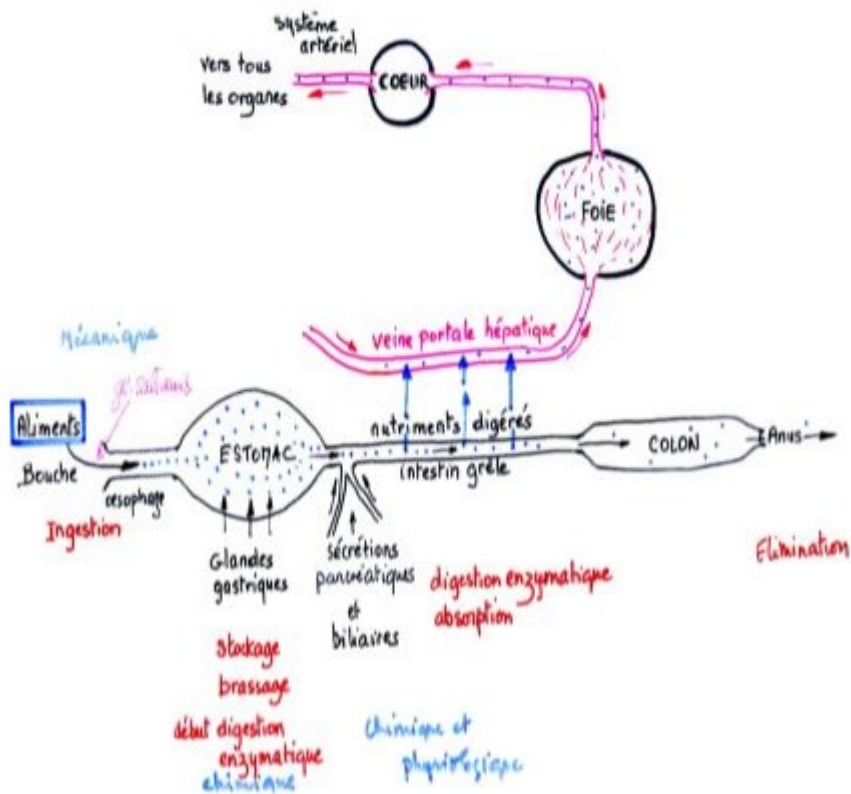 système
artériel
vers tous
les organes
COEUR
FOIE
veine portale hépatique
Mécanique
Aliments
Bouche
œsophage
Ingestion
ESTOMAC
nutriments digérés
intestin grêle
COLON
Anus
Elimination
Glandes
gastriques
sécrétions
pancréatiques
et
biliaires
digestion enzymatique
absorption
stockage
brassage
début digestion
enzymatique
chimique
Chimique et
physiologique